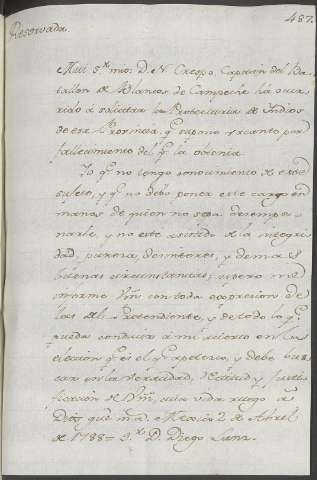 487.
Reservada.
Mui S.r mio: D. N. Crespo, Capitan del Ba-
tallon de Blancos de Campeche há ocur-
rido á solicitar la Protecturia de Indios
de esa Provincia, q.e supone vacante por
fallecimiento del q.e la obtenia.
Yo q.e no tengo conocimiento de este
sujeto, y q.e no debo poner este cargo en
manos de quien no sepa desempe-
ñarle, y no esté asistido de la integri-
dad, pureza, desinteres, y demas
buenas circunstancias; espero me
informe Vm. con toda expresion de
las del Pretendiente, y de todo lo q.e
pueda conducir á mi acierto en la
eleccion q.e es el q.e apetezco, y debo bus-
car en la veracidad, rectitud y justi-
ficacion de Vm., cuia vida ruego á
Dios gue. m.s a.s Mexico 2 de Abril
de 1788 = S.r D. Diego Lanz.